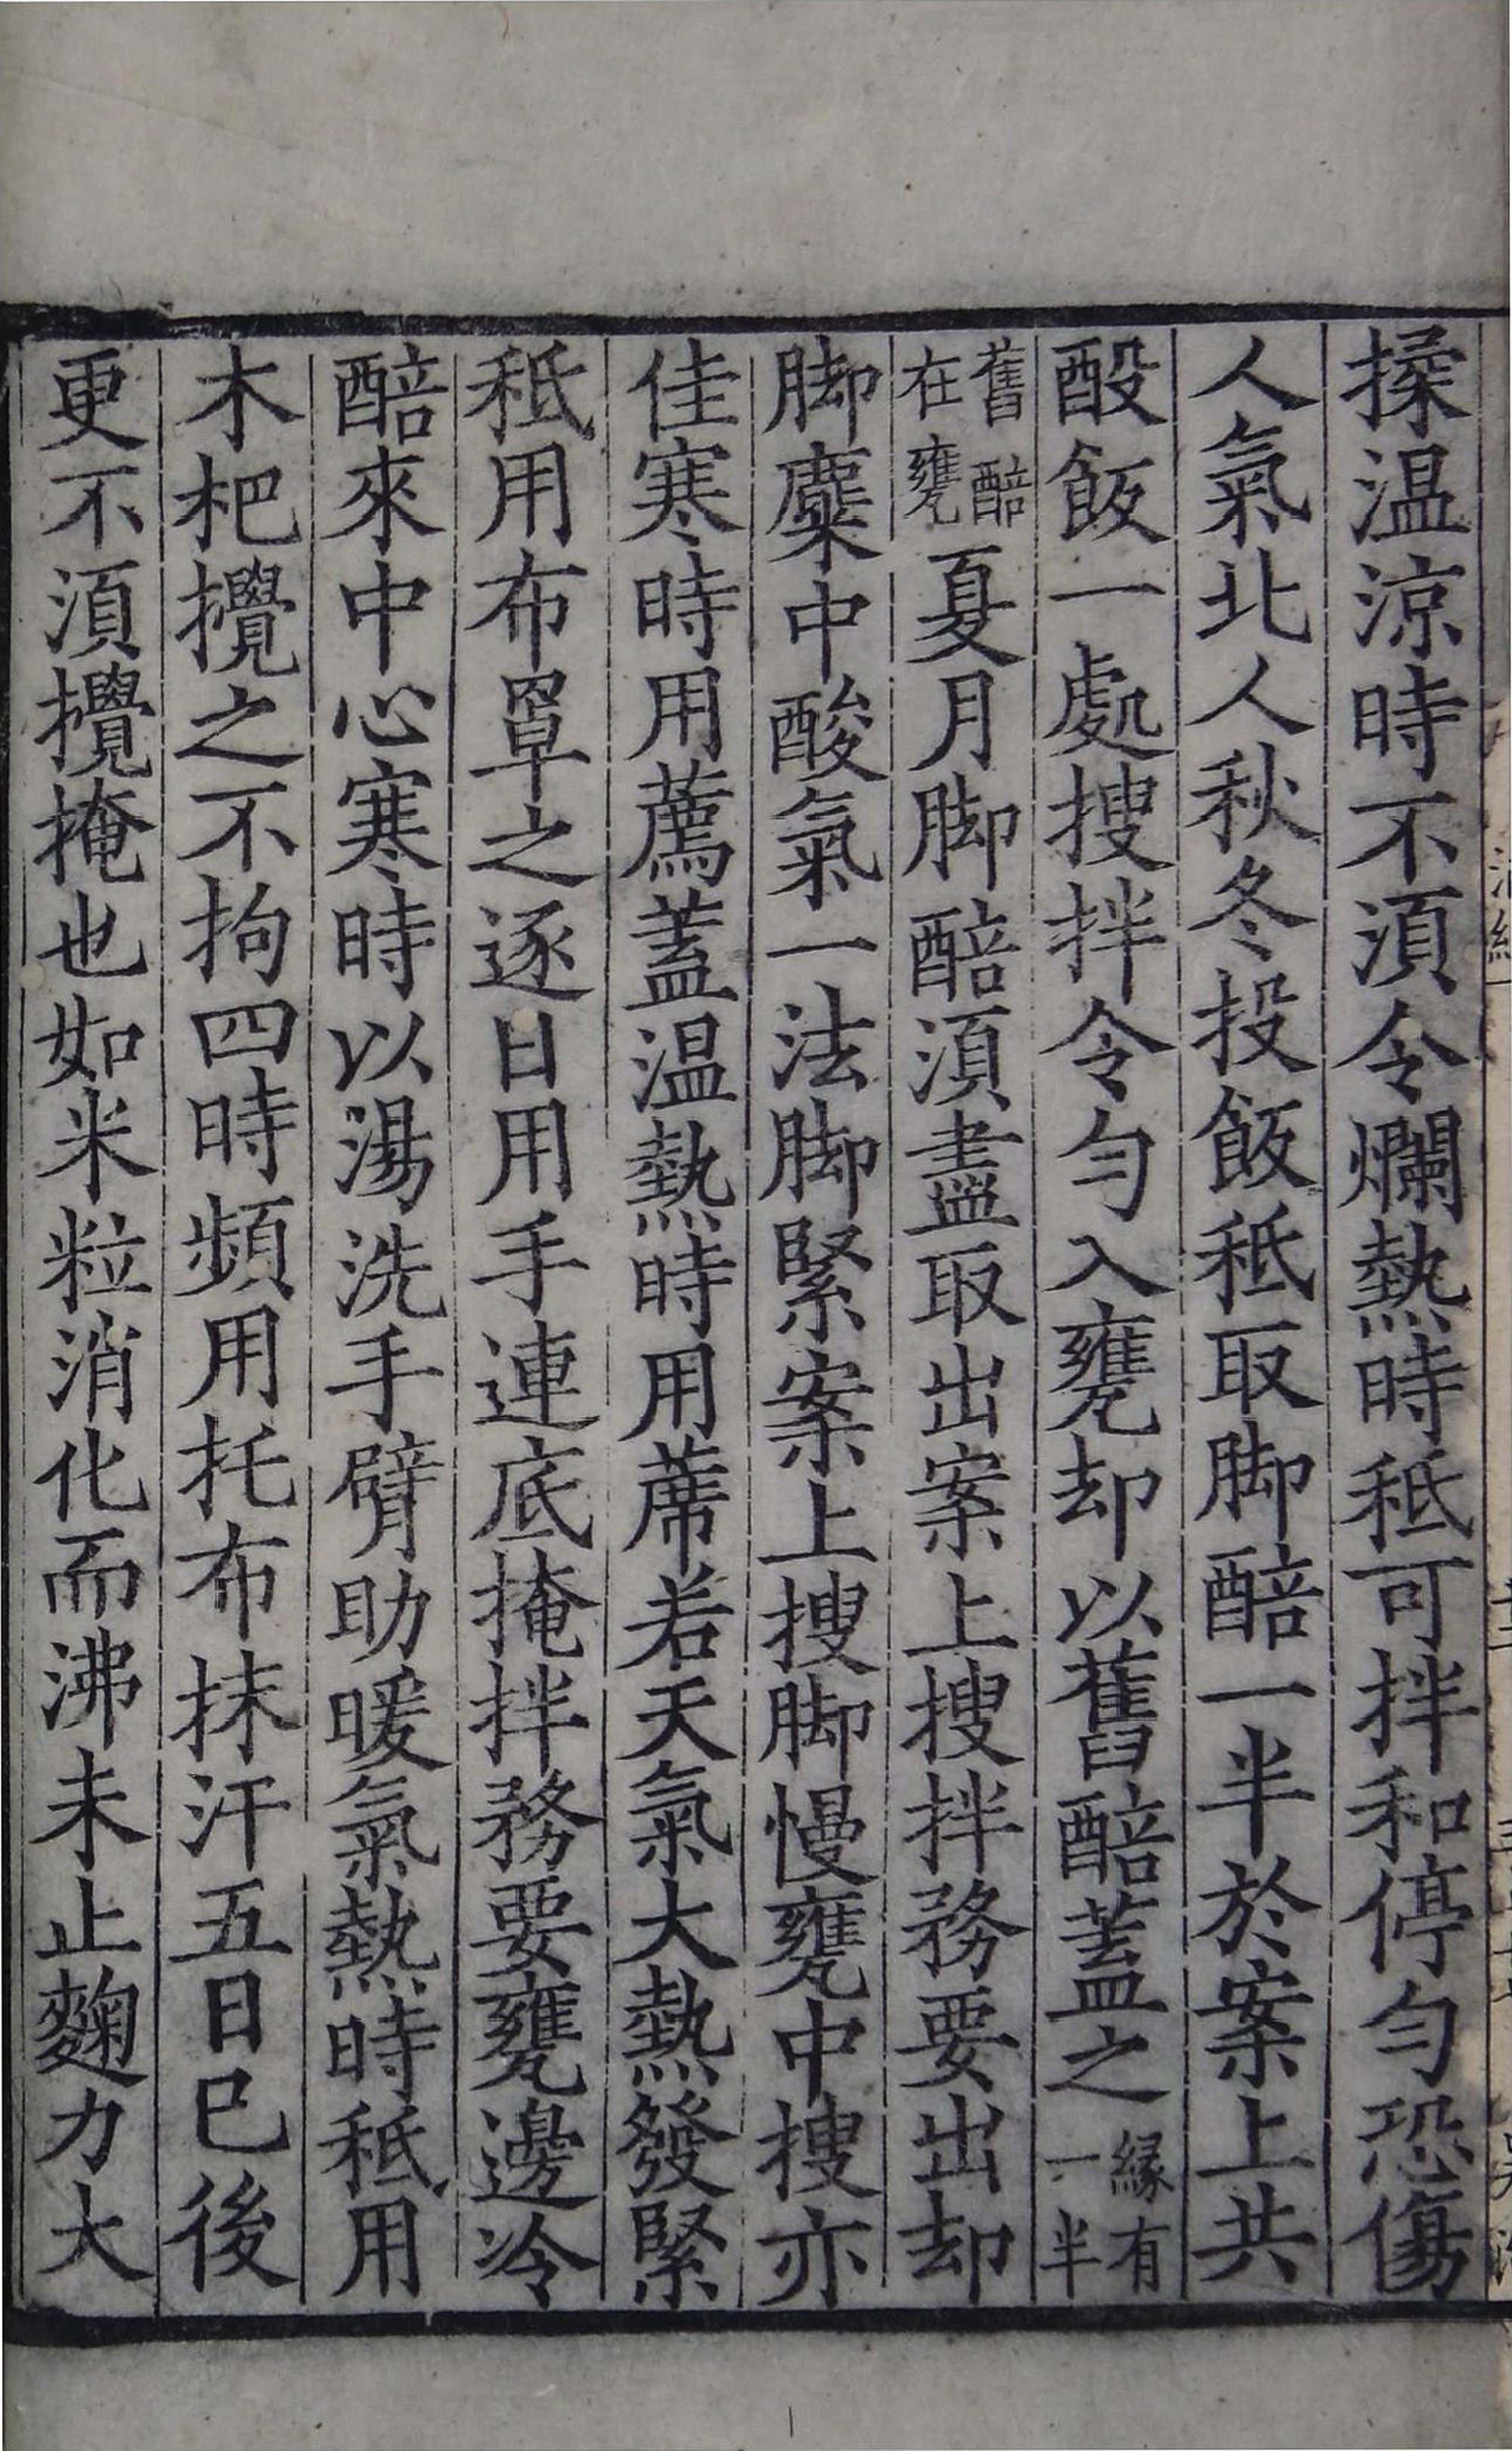 揉温涼時不湏令爛熱時秪可拌和停勻恐傷
人氣北人秋冬投飯秪取脚醅一半於案上共
酘飯一處搜拌令勻入甕却以舊醅蓋之緣有一半
舊醅在甕夏月脚醅湏盡取出案上搜拌務要出却
脚麋中酸氣一法脚緊案上搜脚慢甕中搜亦
佳寒時用薦蓋温熱時用蓆若天氣大熱發緊
秪用布罩之逐日用手連底掩拌務要甕邊冷
醅來中心寒時以湯洗手臂助暖氣熱時秪用
木杷攪之不拘四時頻用托布抹汗五日巳後
更不湏攪掩也如米粒消化而沸未止麴力大